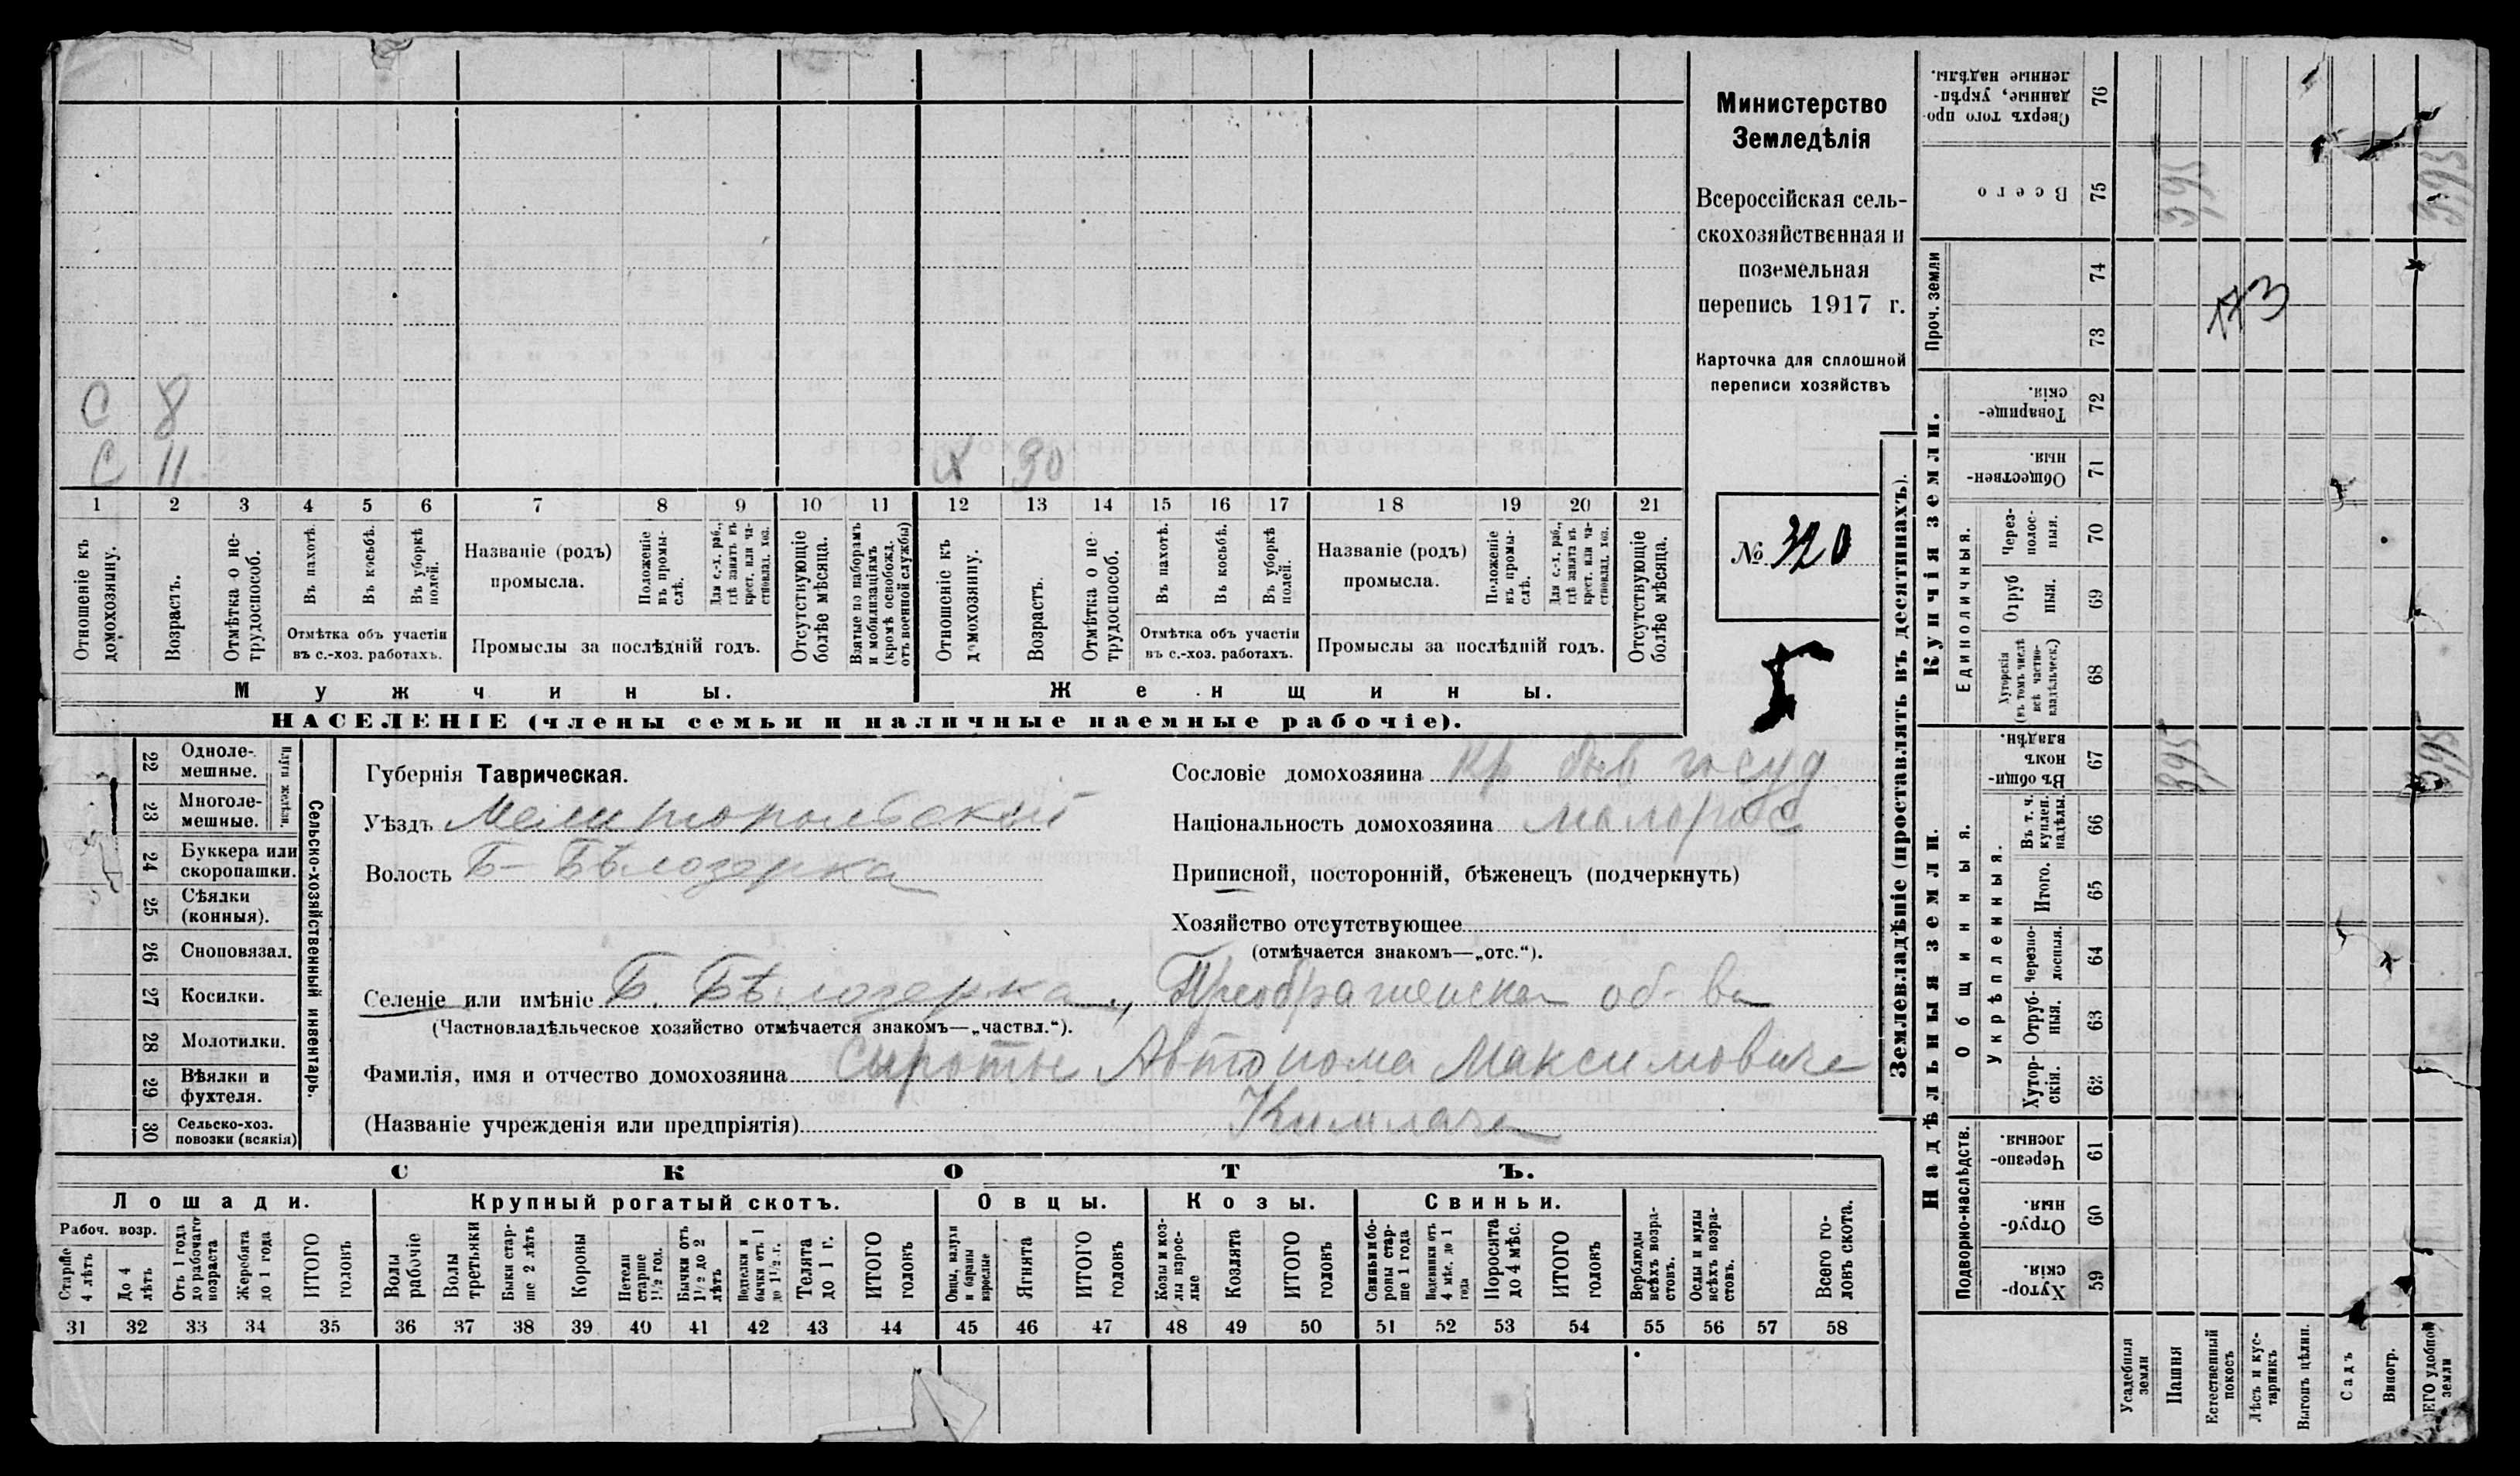 С 8
С 11
Х 30
1 2 3 4 5 6 7 8 9 10 11 12 13 14 15 16 17 18 19 20 21
Отношеніе къ домохозяину.
Возрастъ.
Отмѣтка о не-
трудоспособ.
Въ пахотѣ.
Въ косьбѣ.
Въ уборкѣ
полей.
Отмѣтка объ участіи
въ с.-хоз. работахъ.
Названіе (родъ)
промысла.
Положеніе
въ промы-
слѣ.
Для с.-х. раб.,
гдѣ занятъ въ
крест. или ча-
стновлад. хоз.
Промыслы за послѣдній годъ.
Отсутствующіе
болѣе мѣсяца.
Взятые по наборамъ
и мобилизаціямъ
(кромѣ освобожд.
отъ военной службы)
Отношеніе къ
домохозяину.
Возрастъ.
Отмѣтка о не-
трудоспособ.
Въ пахотѣ.
Въ косьбѣ.
Въ уборкѣ
полей.
Отмѣтка объ участіи
въ с.-хоз. работахъ.
Названіе (родъ)
промысла.
Положеніе
въ промы-
слѣ.
Для с.-х. раб.,
гдѣ занята въ
крест. или ча-
стновлад. хоз.
Промыслы за послѣдній годъ.
Отсутствующіе
болѣе мѣсяца.
Мужчины.
Женщины.
НАСЕЛЕНІЕ (члены семьи и наличные наемные рабочіе).
Министерство
Земледѣлія
Всероссійская сель-
скохозяйственная и
поземельная
перепись 1917 г.
Карточка для сплошной
переписи хозяйствъ
№ 320
22 Одноле-
мешные.
23 Многоле-
мешные.
Плуги желѣзн.
24 Буккера или
скоропашки.
25 Сѣялки
(конныя).
26 Сноповязал.
27 Косилки.
28 Молотилки.
29 Вѣялки и
фухтеля.
30 Сельско-хоз.
повозки (всякія)
Сельско-хозяйственный инвентарь.
Губернія Таврическая.
Уѣздъ Мелитопольскій
Волость Б- Бѣлозерка
Селеніе или имѣніе Б. Бѣлозерка, Преображенска об-ва
(Частновладѣльческое хозяйство отмѣчается знакомъ—„частвл.“).
Фамилія, имя и отчество домохозяина Сироты Автонома Максимовича
(Названіе учрежденія или предпріятія)
Сословіе домохозяина кр быв госуд
Національность домохозяина малорос
Приписной, посторонній, бѣженецъ (подчеркнуть)
Хозяйство отсутствующее
(отмѣчается знакомъ—„отс.“).
СКОТЪ.
Лошади.
Рабоч. возр.
Старше
4 лѣтъ
До 4
лѣтъ
Отъ 1 года
до рабочаго
возраста
Жеребята
до 1 года
ИТОГО
головъ
Крупный рогатый скотъ.
Волы
рабочіе
Волы
третьяки
Быки стар-
ше 2 лѣтъ
Коровы
Нетели
старше
1½ год.
Бычки отъ
1½ до 2
лѣтъ
Подтелки и
бычки отъ 1
до 1½ г.
Телята
до 1 г.
ИТОГО
головъ
Овцы.
Овцы, валухи
и бараны
взрослые
Ягнята
ИТОГО
головъ
Козы.
Козы и коз-
лы взрос-
лые
Козлята
ИТОГО
головъ
Свиньи.
Свиньи и бо-
ровы стар-
ше 1 года
Подсвинки отъ
4 мѣс. до 1
года
Поросята
до 4 мѣс.
ИТОГО
головъ
Верблюды
всѣхъ возра-
стовъ.
Ослы и мулы
всѣхъ возра-
стовъ.
Всего го-
ловъ скота.
31 32 33 34 35 36 37 38 39 40 41 42 43 44 45 46 47 48 49 50 51 52 53 54 55 56 57 58
Землевладѣніе (проставлять въ десятинахъ).
Купчія земли.
Надѣльныя земли.
Сверхъ того про-
данные, укрѣп-
ленные надѣлы.
76
Всего
75
395
395
Проч. земли
74
73
Товарище-
скія.
72
Обществен-
ныя.
71
Единоличныя.
Через-
полос-
ныя.
70
Отруб
ныя.
69
Хуторскія
(въ томъ числѣ
всѣ частно-
владѣльческ.)
68
Общинныя.
Въ общи-
номъ
владѣн.
67
395
395
Укрѣпленныя.
Въ т. ч.
куплен.
надѣлы.
66
Итого.
65
Черезпо-
лосныя.
64
Отруб-
ныя.
63
Хутор-
скія.
62
Подворно-наслѣдств.
Черезпо-
лосныя.
61
Отруб-
ныя
60
Хутор-
скія.
59
Усадебныя
земли
Пашня
Естественный
покосъ
Лѣсъ и кус-
тарникъ
Выгонъ цѣлин.
Садъ
Виногр.
ЕГО удобной
земли